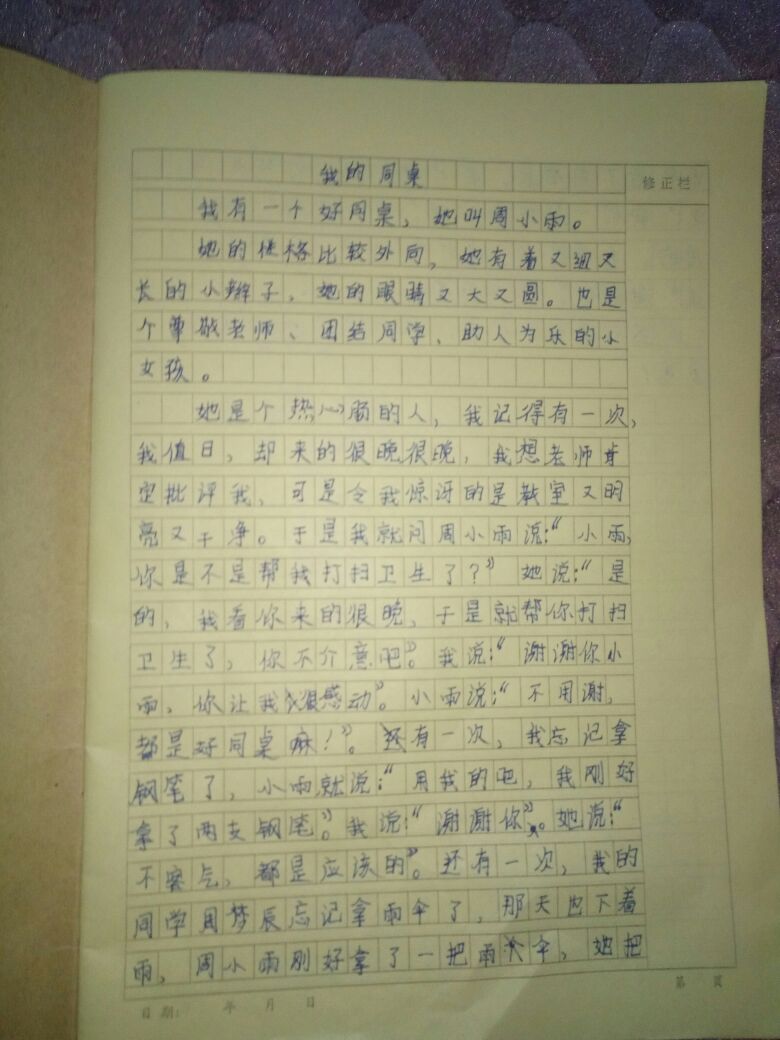 我的同桌
修正栏
我有一个好同桌，她叫周小雨。
她的性格比较外向，她有着又细又
长的小辫子，她的眼睛又大又圆。也是
个尊敬老师、团结同学、助人为乐的小
女孩。
她是个热心肠的人，我记得有一次，
我值日，却来的很晚很晚，我想老师肯
定批评我，可是令我惊讶的是教室又明
亮又干净。于是我就问周小雨说：“小雨，
你是不是帮我打扫卫生了？”她说：“是
的，我看你来的很晚，于是就帮你打扫
卫生了，你不介意吧”。我说：“谢谢你小
雨，你让我很感动”。小雨说：“不用谢，
都是好同桌嘛！”。还有一次，我忘记拿
钢笔了，小雨就说：“用我的吧，我刚好
拿了两支钢笔”。我说：“谢谢你”。她说：“
不客气，都是应该的”。还有一次，我的
同学周梦辰忘记拿雨伞了，那天也下着
雨，周小雨刚好拿了一把雨伞，她把
日期： 年 月 日
第 页